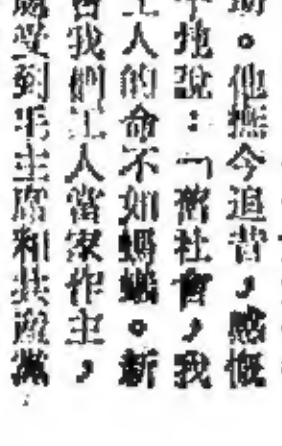 助。他撫今追昔，感慨
地說：「舊社會，我
工人的命不如螞蟻。新
會我們工人當家作主，
受到毛主席和共產黨